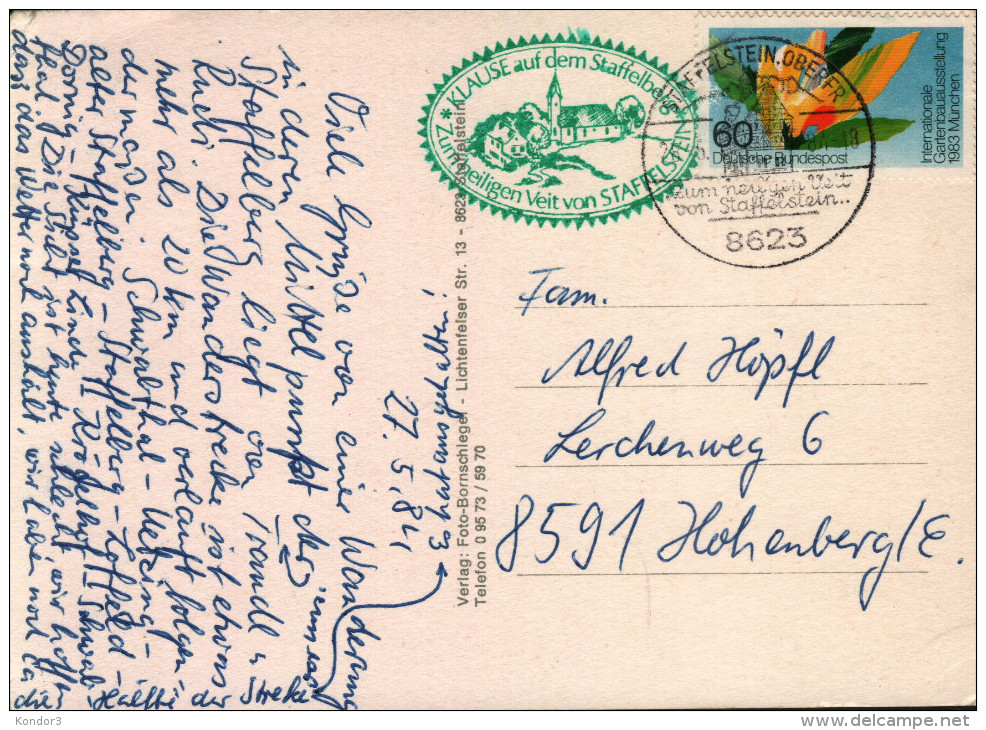 Viele Grüße von einer Wanderung
in deren Mittelpunkt der
Staffelberg liegt von Traudl u
Rudi. Die Wanderstrecke ist etwas
mehr als 20 km und verläuft folgen-
dermaßen: Schwabthal - Uetzing -
alter Staffelberg - Staffelberg - Loffeld -
Dornig - Küpser Linde - Kröttelhof - Schwab-
thal. Die Sicht ist heute schlecht, wir hoffen
dass das Wetter noch aushält, wir haben noch ca
die Hälfte der Strecke
27.5.84
hat ausgehalten!
Verlag: Foto-Bornschlegel - Lichtenfelser Str. 13 - 8623 Staffelstein
Telefon 0 95 73 / 59 70
* KLAUSE auf dem Staffelberg *
Zum heiligen Veit von STAFFELSTEIN
60
Deutsche Bundespost
Internationale
Gartenbauausstellung
1983 München
STAFFELSTEIN, OBERFR
Zum heiligen Veit
von Staffelstein..
8623
Fam.
Alfred Höpfl
Lerchenweg 6
8591 Hohenberg/E.
Kondor3
http://www.delcampe.net